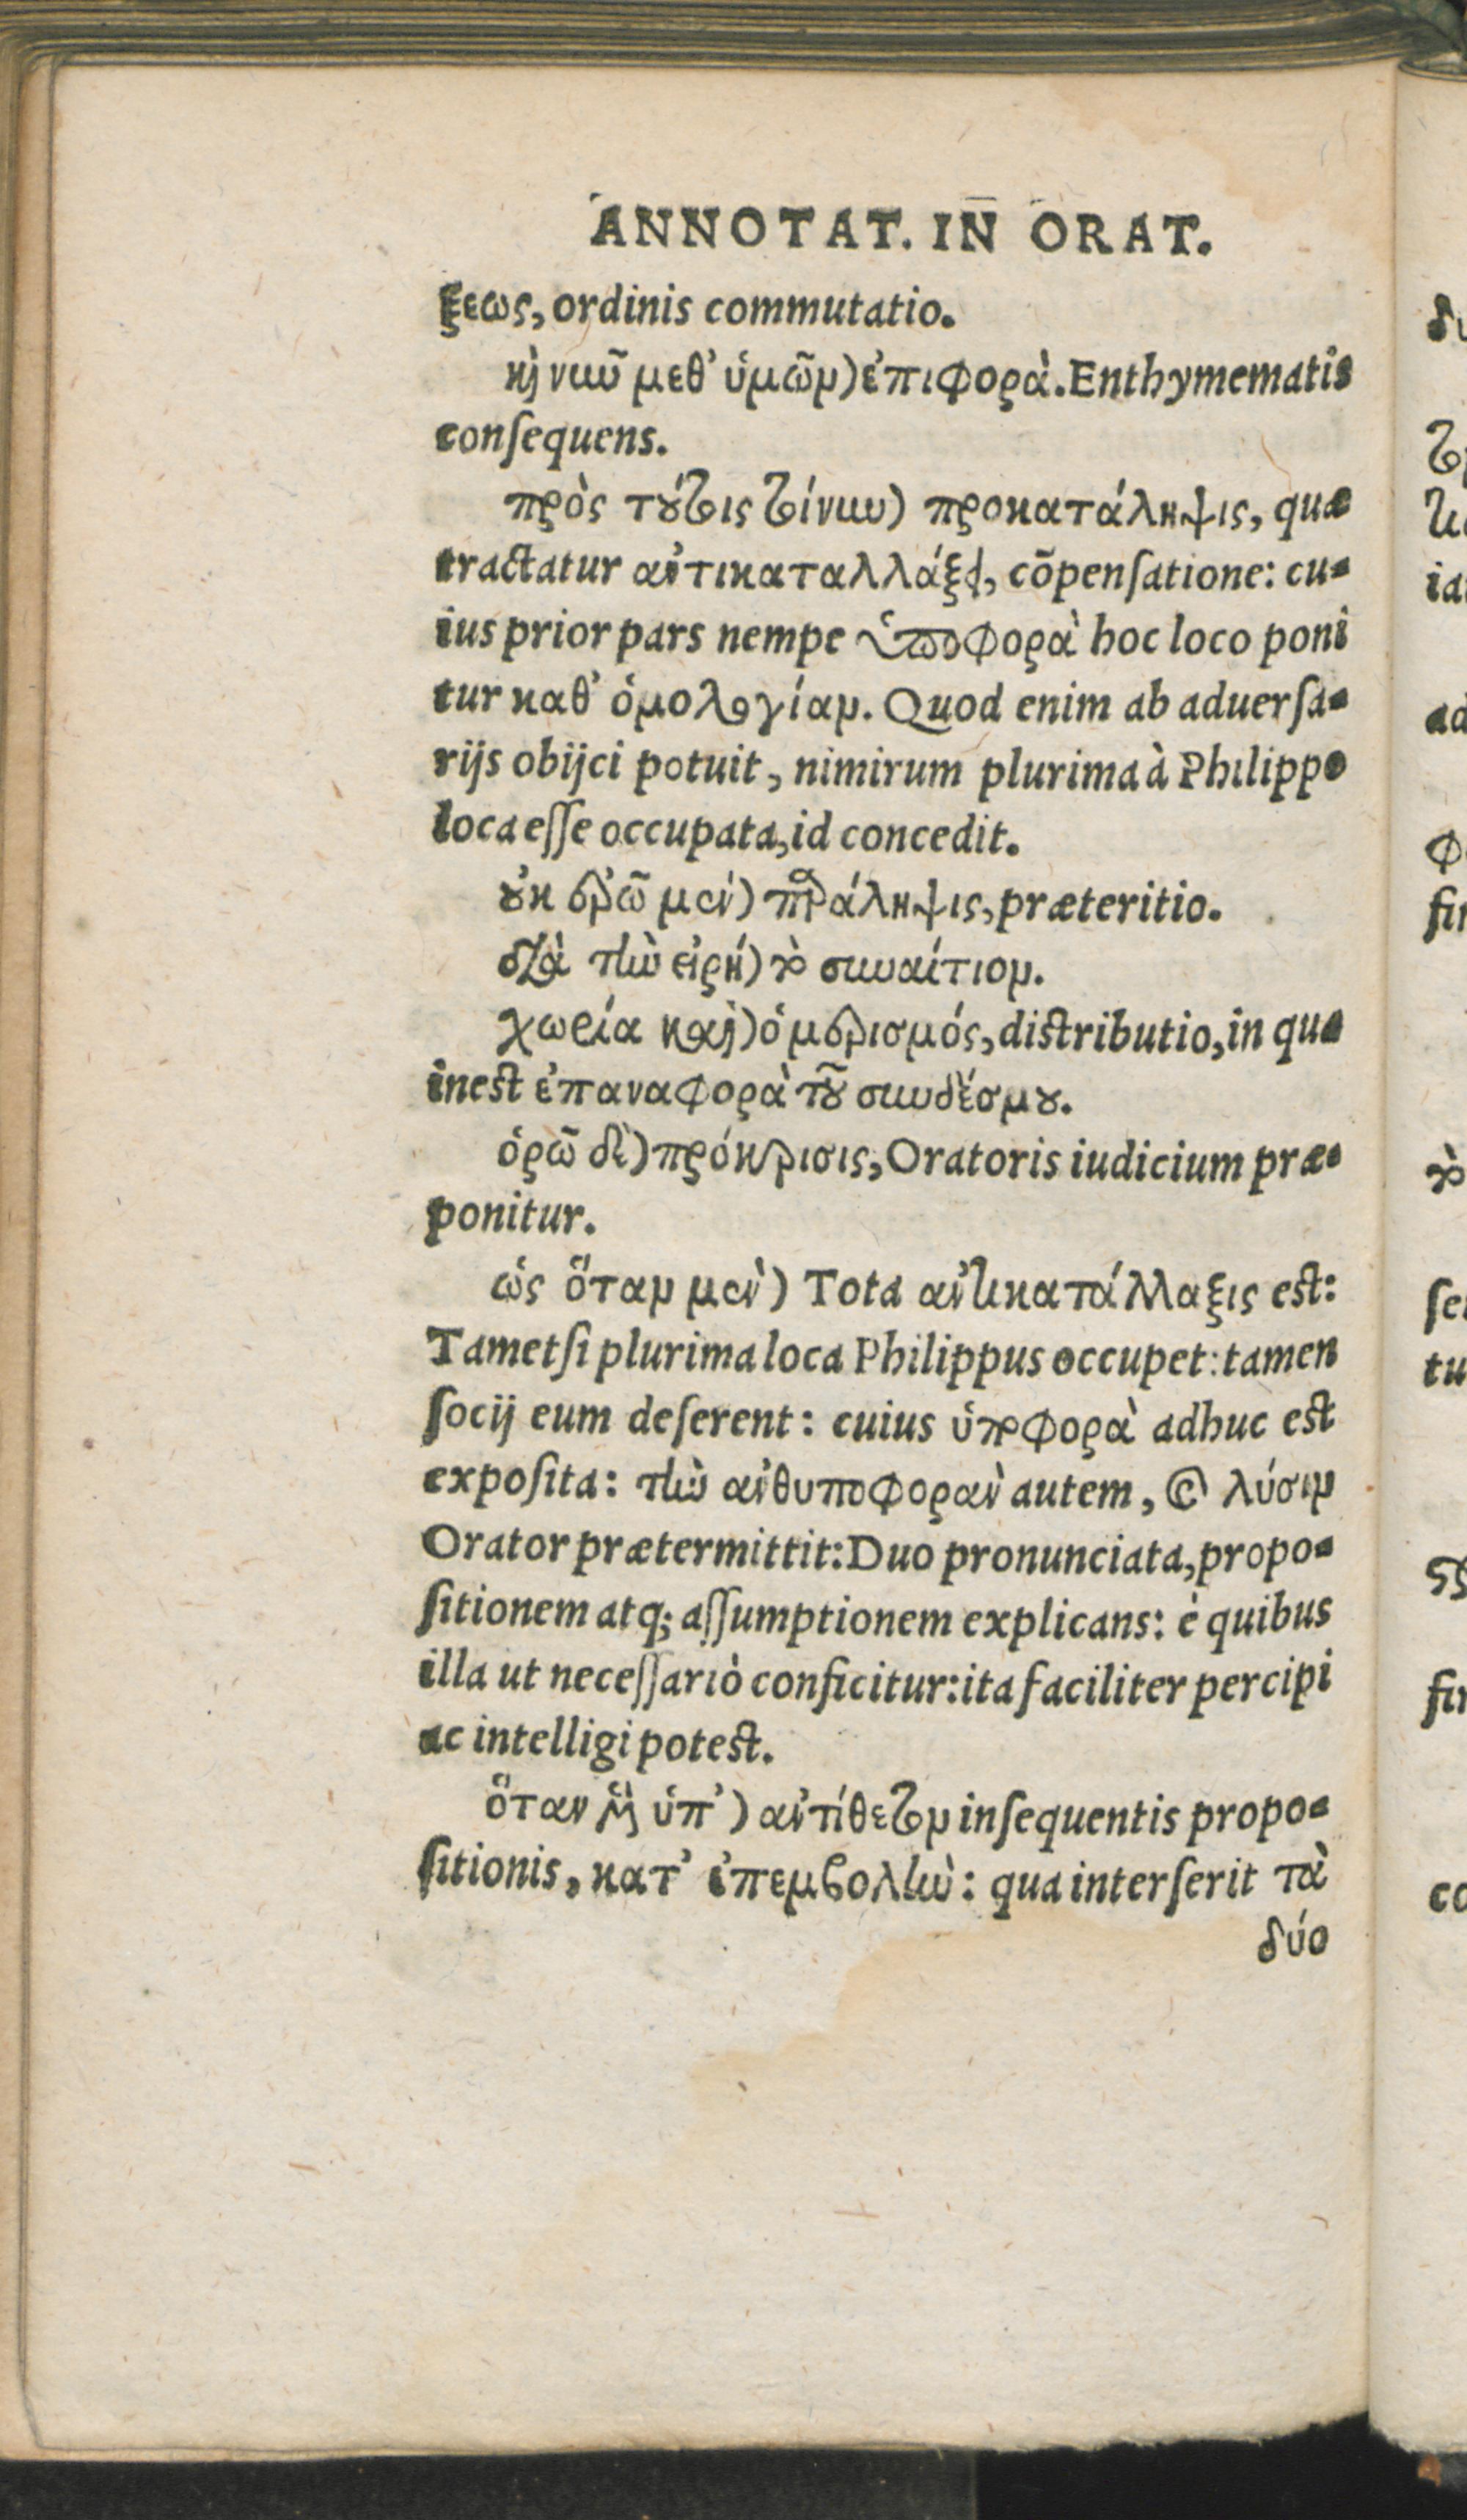 ANNOTAT. IN ORAT.
ξεως, ordinis commutatio.
κὴ νιῦ μεθ’ ὑμῶν) ἐπιφορὰ. Enthymematis
conſequens.
πρὸς τούτοις τοίνυν) προκατάληψις, quæ
tractatur ἀντικαταλλάξει, cõpenſatione: cu-
ius prior pars nempe ὑποφορὰ hoc loco poni
tur καθ’ ὁμολογίαν. Quod enim ab aduerſa-
rijs obijci potuit, nimirum plurima à Philippo
loca eſſe occupata, id concedit.
οὐκ ἐρῶ μὲν) παράληψις, præteritio.
διὰ τὴν εἰρή) τὸ συναίτιον.
χωρία καὶ) ὁ μερισμός, distributio, in qua
inest ἐπαναφορὰ τοῦ συνδέσμου.
ὁρῶ δὲ) πρόκρισις, Oratoris iudicium præ-
ponitur.
ὡς ὅταν μὲν) Tota ἀντικατάλλαξις est:
Tametſi plurima loca Philippus occupet: tamen
ſocij eum deſerent: cuius ὑποφορὰ adhuc est
expoſita: τὴν ἀνθυποφορὰν autem, & λύσιν
Orator prætermittit: Duo pronunciata, propo-
ſitionem atq; aſſumptionem explicans: è quibus
illa ut neceſſariò conficitur: ita faciliter percipi
ac intelligi potest.
ὅταν μὲν ὑπ’) ἀντίθετον inſequentis propo-
ſitionis, κατ’ ἐπεμβολὴν: qua interſerit τὰ
δύο